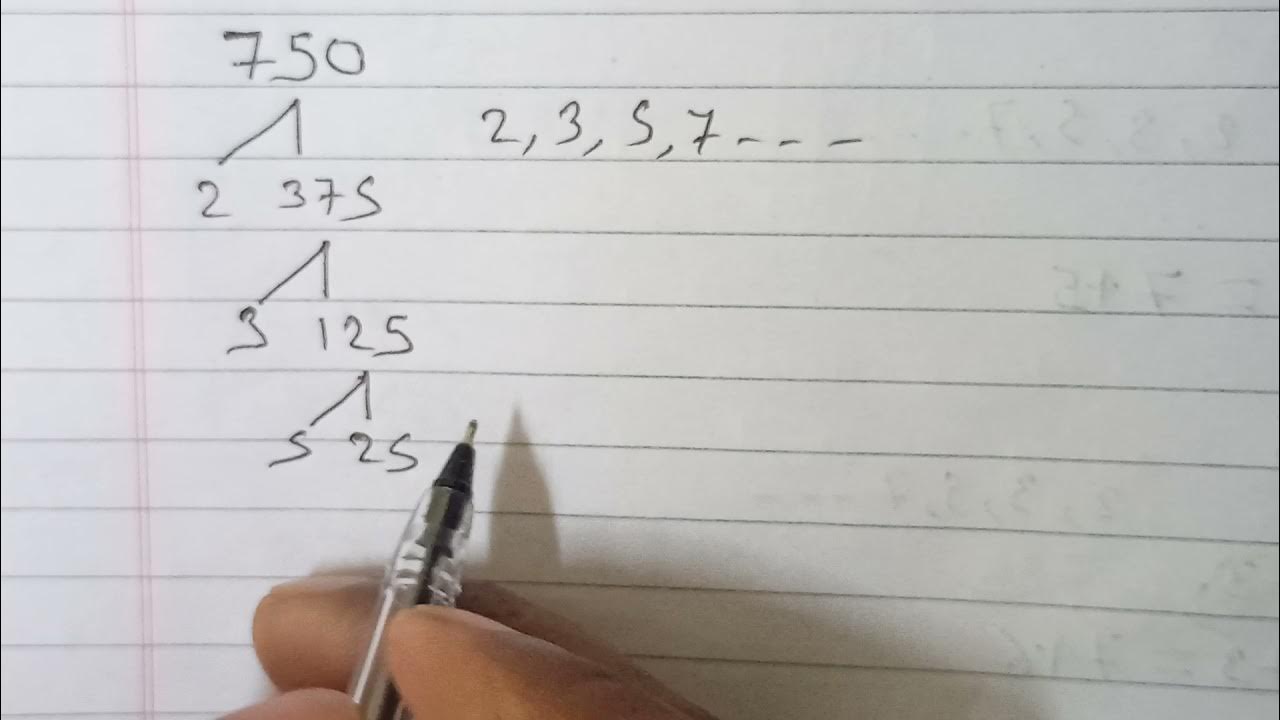 750
2, 3, 5, 7 - - -
2 375
3 125
5 25